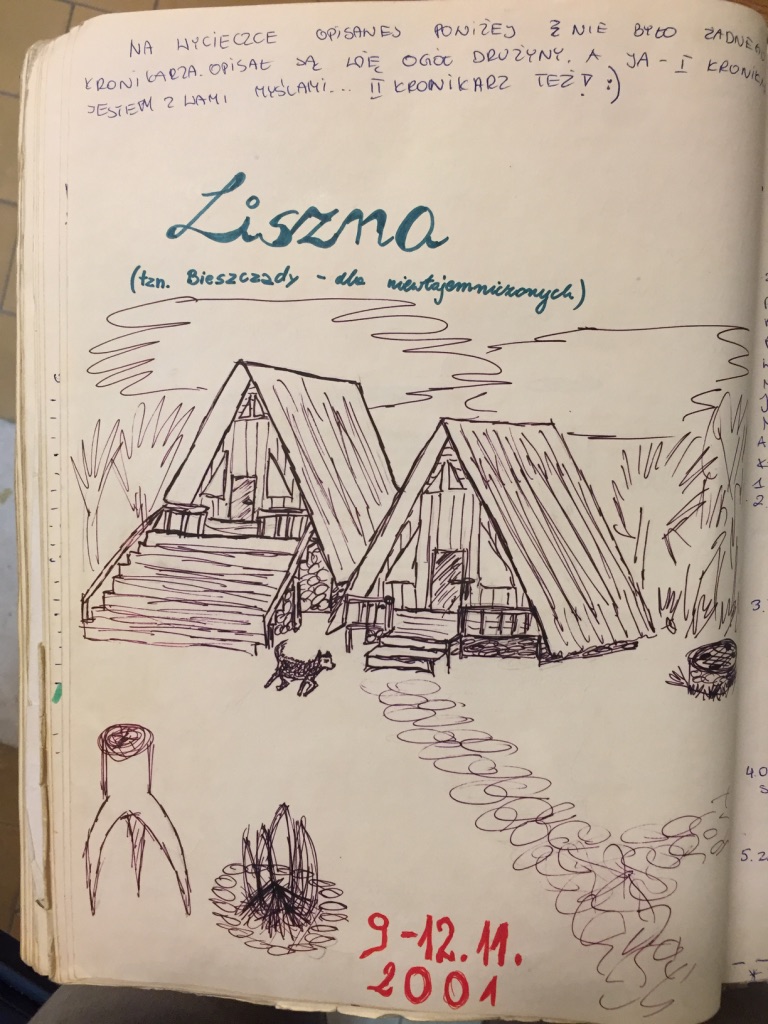 NA WYCIECZCE OPISANEJ PONIŻEJ NIE BYŁO
KRONIKARZA. OPISAŁ JĄ WIĘC OGÓŁ DRUŻYNY. A JA - I
JESTEM Z WAMI MYŚLAMI... II KRONIKARZ TEŻ! :)
Liszna
(tzn. Bieszczady - dla niewtajemniczonych)
9-12.11.
2001
3.
5.